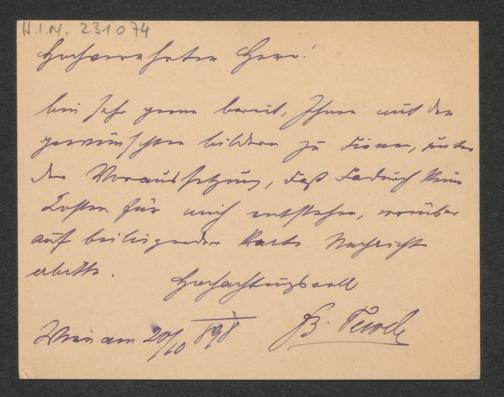 H.I.N. 231074
Hochverehrter Herr!
bin sehr gerne bereit, Ihnen mit den
gewünschten bildern zu dienen, unter
der Voraussetzung, daß dadurch keine
Kosten für mich entstehen, worüber
auf beiliegender Karte Nachricht
erbitte.
Hochachtungsvoll
Wien am 20/10 898
B.